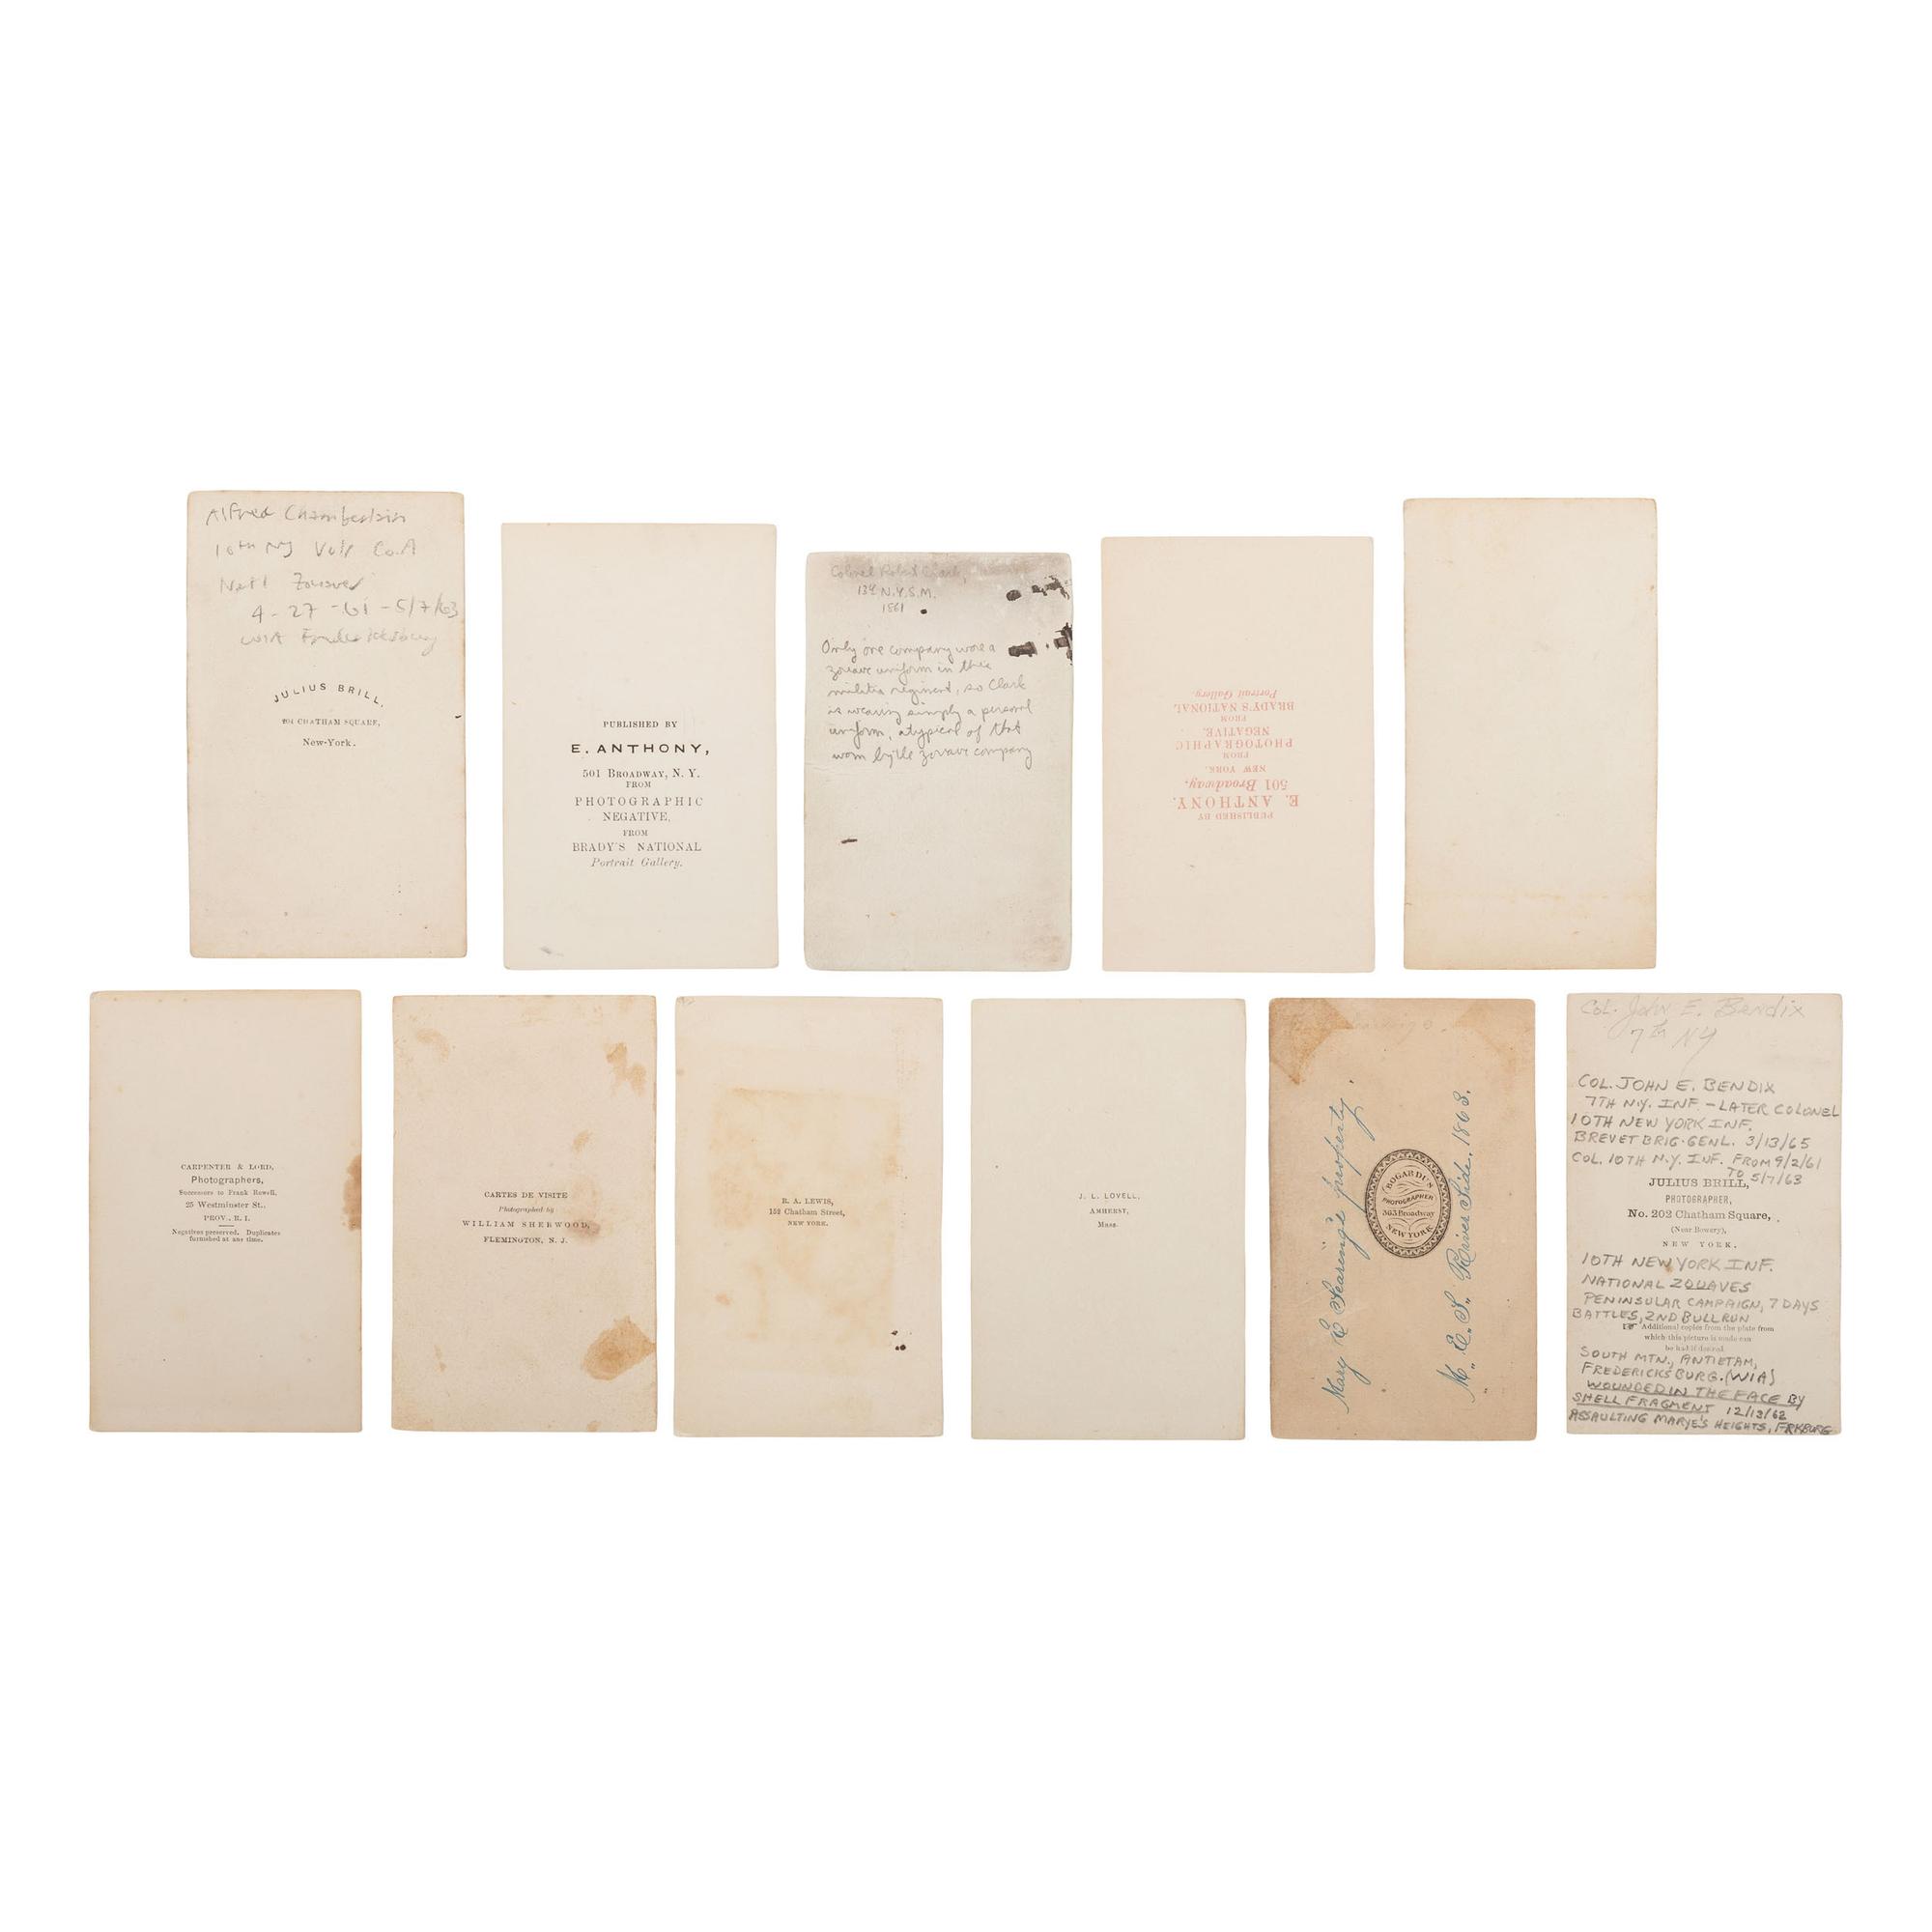 Alfred Chamberlain
10th NY Vols Co. A
Natl Zouaves
4-27-61-5/7/63
WIA Fredericksburg
JULIUS BRILL,
CHATHAM SQUARE,
New-York.
PUBLISHED BY
E. ANTHONY,
501 BROADWAY, N. Y.
FROM
PHOTOGRAPHIC
NEGATIVE,
FROM
BRADY'S NATIONAL
Portrait Gallery.
Colonel Robert Clark,
13th N.Y.S.M.
1861
Only one company wore a
zouave uniform in this
militia regiment, so Clark
is wearing simply a personal
uniform, atypical of that
worn by the zouave company
PUBLISHED BY
E. ANTHONY.
501 Broadway,
NEW YORK.
FROM
PHOTOGRAPHIC
NEGATIVE.
FROM
BRADY'S NATIONAL
Portrait Gallery.
CARPENTER & LORD,
Photographers,
Successors to Frank Rowell,
25 Westminster St.,
PROV., R. I.
Negatives preserved. Duplicates
furnished at any time.
CARTES DE VISITE
Photographed by
WILLIAM SHERWOOD,
FLEMINGTON, N. J.
R. A. LEWIS,
152 Chatham Street,
NEW YORK.
J. L. LOVELL,
AMHERST,
Mass.
Mary E Searing's property.
BOGARDUS
PHOTOGRAPHER
363 Broadway
NEW YORK
M. E. S. River Side. 1863.
COL. John E. Bendix
7th NY
COL. JOHN E. BENDIX
7TH N.Y. INF. - LATER COLONEL
10TH NEW YORK INF.
BREVET BRIG. GENL. 3/13/65
COL. 10TH N.Y. INF. FROM 9/2/61
TO 5/7/63
JULIUS BRILL,
PHOTOGRAPHER,
No. 202 Chatham Square,
(Near Bowery),
NEW YORK.
10TH NEW YORK INF.
NATIONAL ZOUAVES
PENINSULAR CAMPAIGN, 7 DAYS
BATTLES, 2ND BULL RUN
☞ Additional copies from the plate from
which this picture is made can
be had if desired
SOUTH MTN., ANTIETAM,
FREDERICKSBURG. (WIA)
WOUNDED IN THE FACE BY
SHELL FRAGMENT 12/13/62
ASSAULTING MARYE'S HEIGHTS, FRKBURG